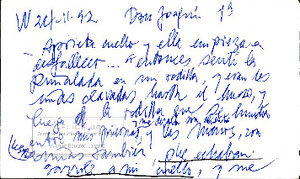 W 24-II-92 Don Joaquín 1ª
Aprieta cuello y ella empieza a
desfallecer... entonces sentí la
puñalada en mi rodilla, y eran les
uñas clavadas hasta el hueso, y
luego la rodilla que
entre mis piernas y les manos, con
también que echaban
a mi cuello, y me